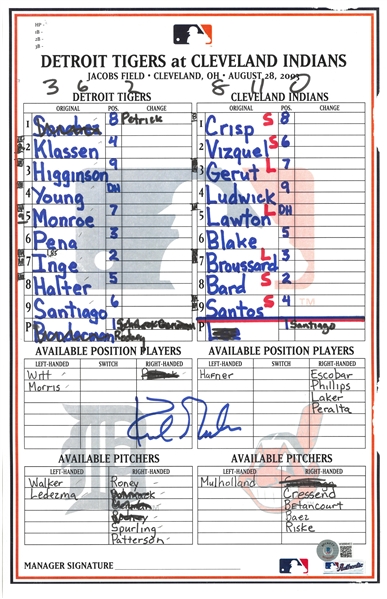 HP -
1B -
2B -
3B -
DETROIT TIGERS at CLEVELAND INDIANS
JACOBS FIELD • CLEVELAND, OH • AUGUST 28, 2003
3 6 2 8 11 0
DETROIT TIGERS CLEVELAND INDIANS
ORIGINAL POS. CHANGE ORIGINAL POS. CHANGE
1 Sanchez 8 Petrick 1 Crisp S 8
2 Klassen 4 2 Vizquel S 6
3 Higginson 9 3 Gerut L 7
4 Young DH 4 Ludwick 9
5 Monroe 7 5 Lawton L DH
6 Pena 3 6 Blake 5
7 Inge 2 7 Broussard L 3
8 Halter 5 8 Bard S 2
9 Santiago 6 9 Santos S 4
P Bonderman 1 Rodney P 1 Santiago
AVAILABLE POSITION PLAYERS AVAILABLE POSITION PLAYERS
LEFT-HANDED SWITCH RIGHT-HANDED LEFT-HANDED SWITCH RIGHT-HANDED
Witt Petrick Hafner Escobar
Morris Phillips
Laker
Peralta
AVAILABLE PITCHERS AVAILABLE PITCHERS
LEFT-HANDED RIGHT-HANDED LEFT-HANDED RIGHT-HANDED
Walker Roney Mulholland Santiago
Ledezma Cressend
Betancourt
Rodney Baez
Spurling Riske
Patterson
MANAGER SIGNATURE
Authentic